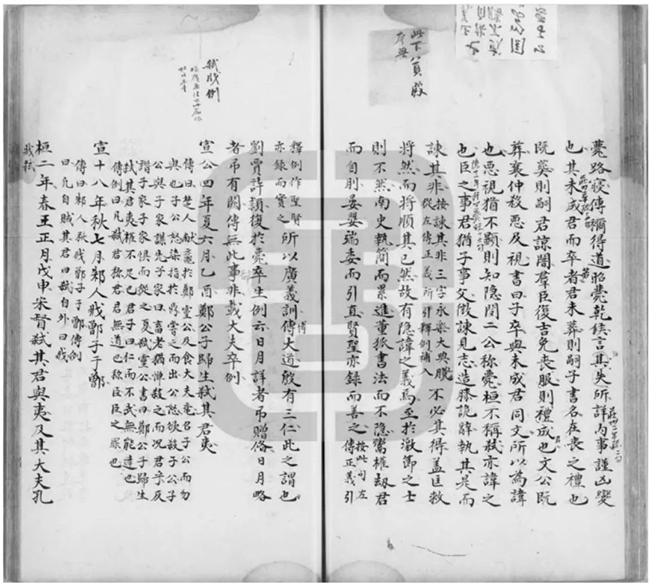 此下頁殿
薨路寢傳禰得道昭薨乾侯言其失所詳內事謹凶變
也其未成君而卒者君未葬則嗣子書名在喪之禮也
既葬則嗣君諒闇羣臣復吉免喪服則禮成也文公既
葬襄仲殺惡及視書曰子卒與未成君同文所以為諱
也惡視猶不顯則知隱閔二公稱薨桓不稱弒亦諱之
也臣之事君猶子事父微諫見志造膝詭辭執其是而
諫其非按諫其非三字永樂大典脫從左傳正義所引釋例補入不必其得蓋匡救
將然而將順其已然故有隱諱之義焉至於激節之士
則不然南史執簡而累進董狐書法而不隱鬻權劫君
而自刖晏嬰端委而引直賢聖亦錄而善之按此句左傳正義引
釋例作聖賢亦錄而實之所以廣義訓博大道殷有三仁此之謂也
劉賈許頴復於薨卒生例云日月詳者弔贈備日月略
者弔有闕傳無此事非載大夫卒例
弒戕例
宣公四年夏六月乙酉鄭公子歸生弒其君夷
傳曰楚人獻黿於鄭靈公及食大夫黿召子公而勿
與也子公怒染指於鼎嘗之而出公怒欲殺子公子
公與子家謀先子家曰畜老猶憚殺之而況君乎反
譖子家子家懼而從之夏弒靈公書曰鄭公子歸生
弒其君夷權不足也君子曰仁而不武無能達也
傳例曰凡弒君稱君君無道也稱臣臣之罪也
宣十八年秋七月邾人戕鄫子于鄫
傳曰邾人戕鄫子于鄫傳例
曰凡自虐其君曰弒自外曰戕
桓二年春王正月戊申宋督弒其君與夷及其大夫孔